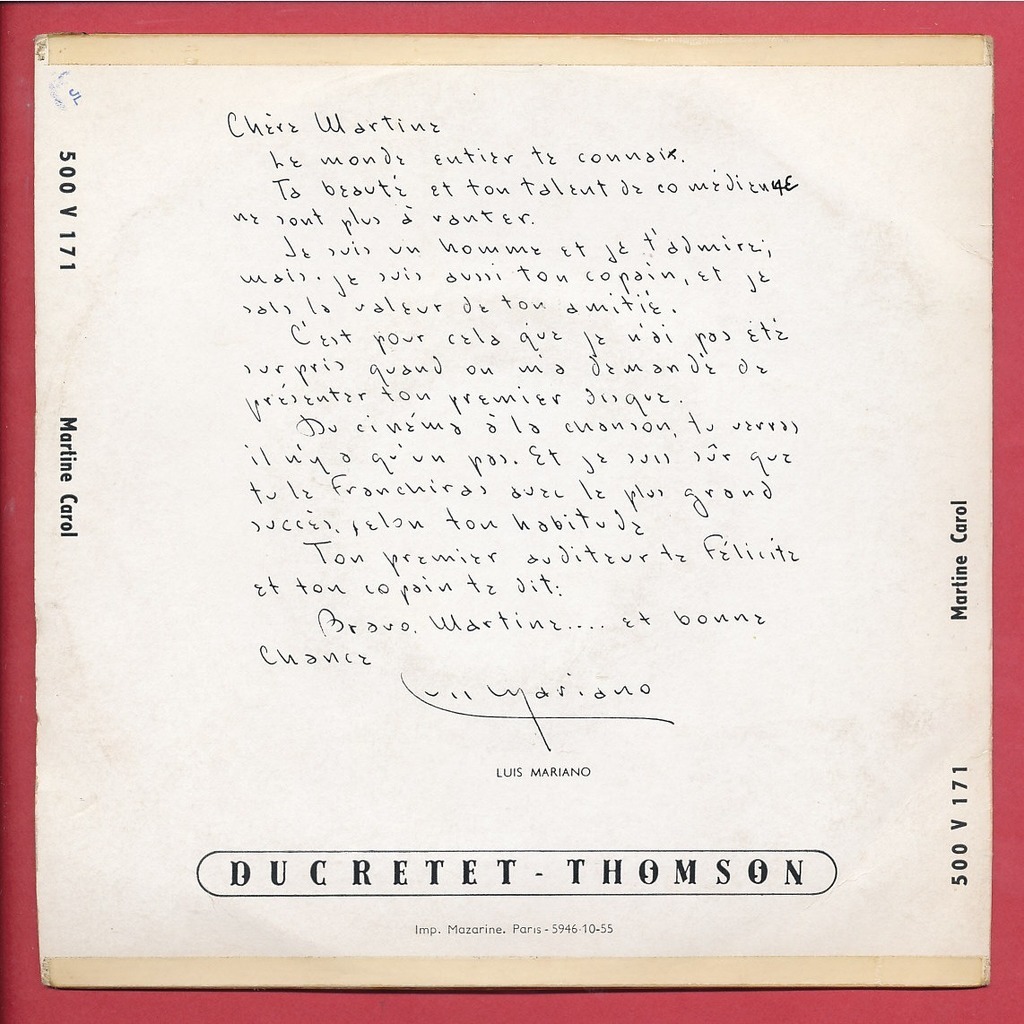 JL
500 V 171
Martine Carol
Chère Martine
Le monde entier te connaix.
Ta beauté et ton talent de comédienne
ne sont plus à vanter.
Je suis un homme et je t'admire;
mais. je suis aussi ton copain, et je
sais la valeur de ton amitié.
C'est pour cela que je n'ai pas été
surpris quand on m'a demandé de
présenter ton premier disque.
Du cinéma à la chanson, tu verras
il n'y a qu'un pas. Et je suis sûr que
tu le franchiras avec le plus grand
succès, selon ton habitude
Ton premier auditeur te félicite
et ton copain te dit:
Bravo. Martine.... et bonne
Chance
Luis Mariano
LUIS MARIANO
Martine Carol
500 V 171
DUCRETET - THOMSON
Imp. Mazarine. Paris - 5946-10-55